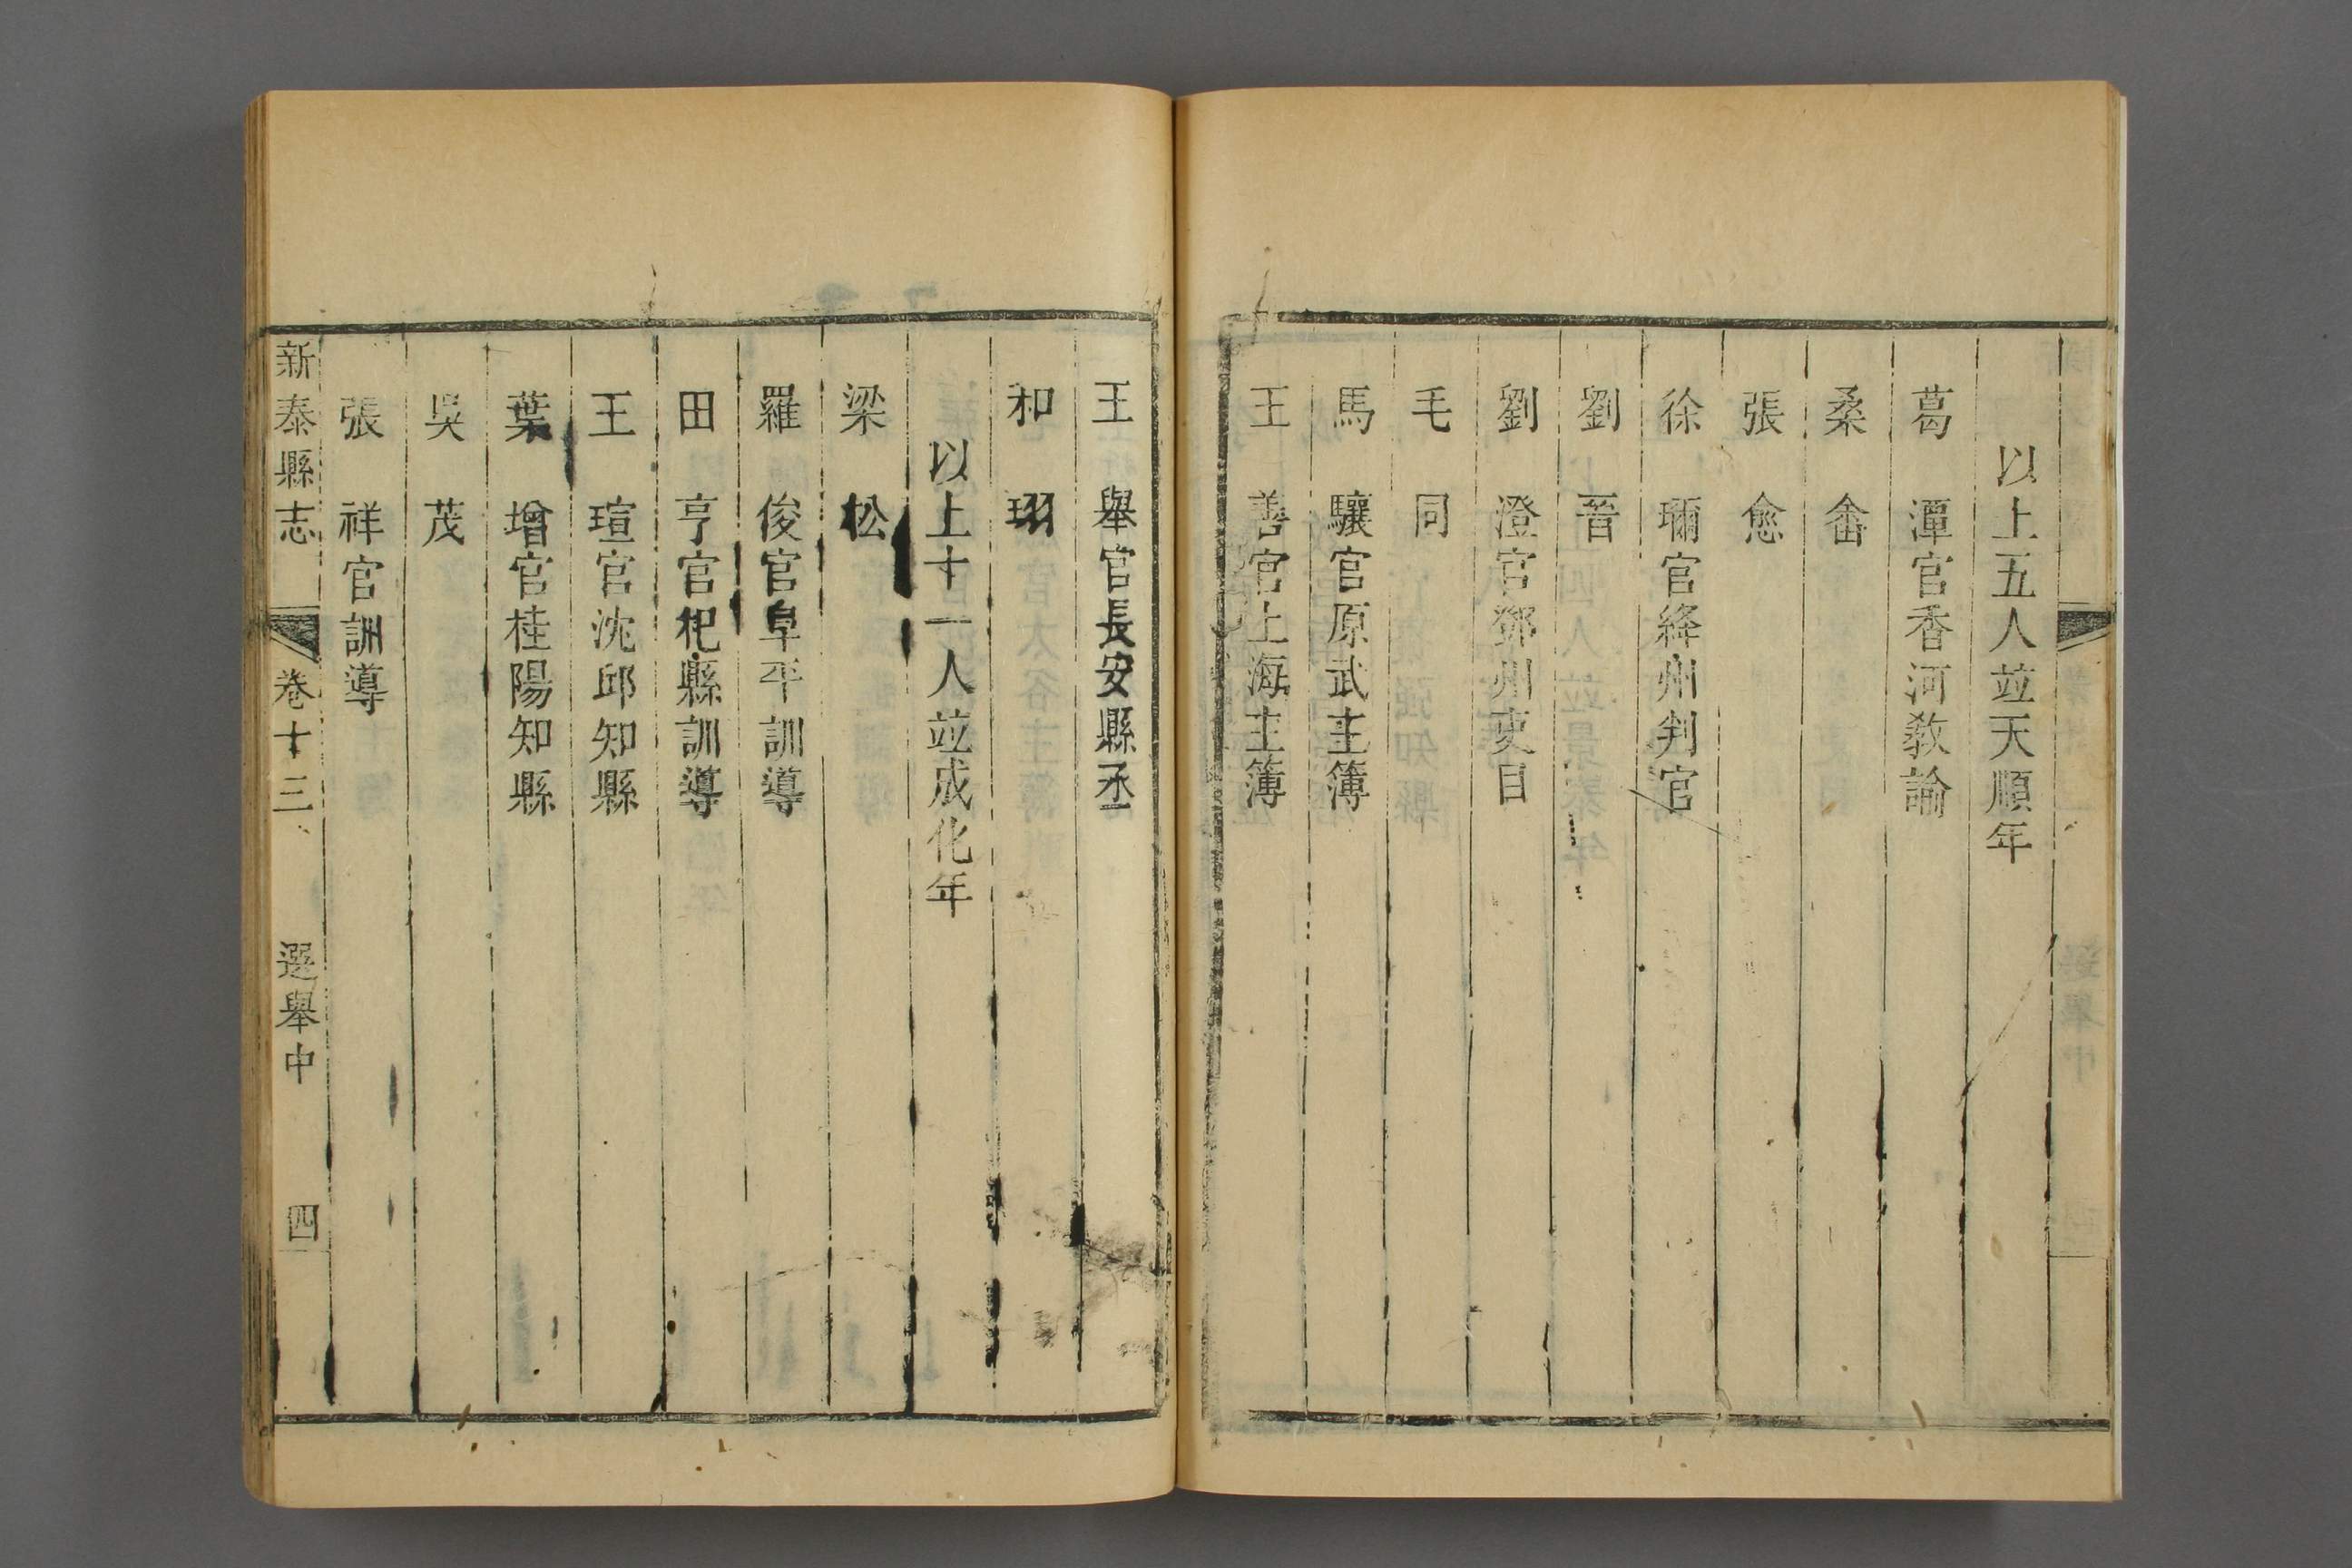 以上五人竝天順年
葛 潭官香河敎諭
桑 畨
張 愈
徐 璽官絳州判官
劉 晉
劉 澄官鄧州吏目
毛 同
馬 驤官原武主簿
王 善官上海主簿
王 舉官長安縣丞
和 珝
以上十一人竝成化年
梁 松
羅 俊官阜平訓導
田 亨官杞縣訓導
王 瑄官沈邱知縣
葉 增官桂陽知縣
吳 茂
張 祥官訓導
新泰縣志 卷十三 選舉中 四